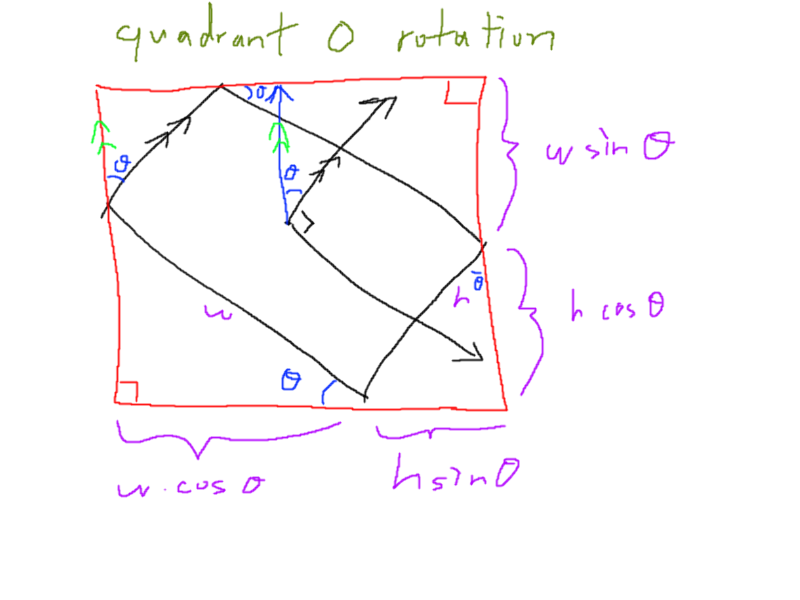 quadrant 0 rotation
θ
θ
θ
w sin θ
θ
h
h cos θ
w
θ
w · cos θ
h sin θ